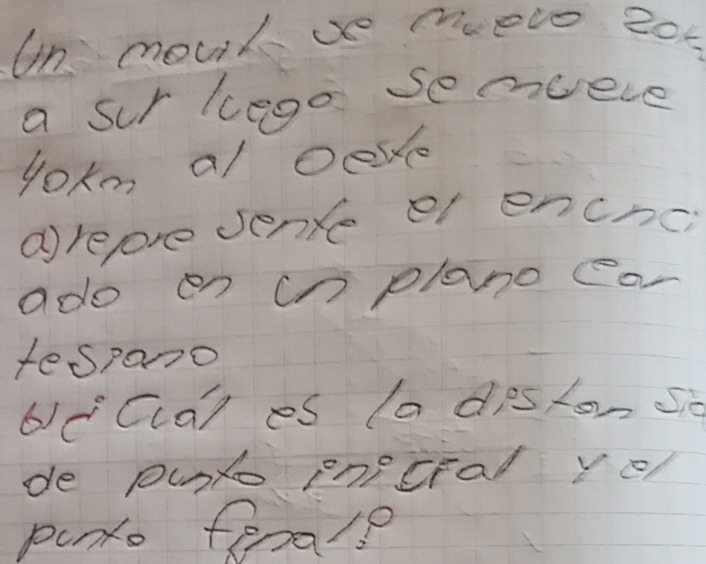 Un movil se muevo 20k
a sur luego se mueve
40km al oeste
a) represente el enunci
ado en un plano car
tesiano
b) ¿Cuál es la distan sia
de punto inicial y el
punto final?